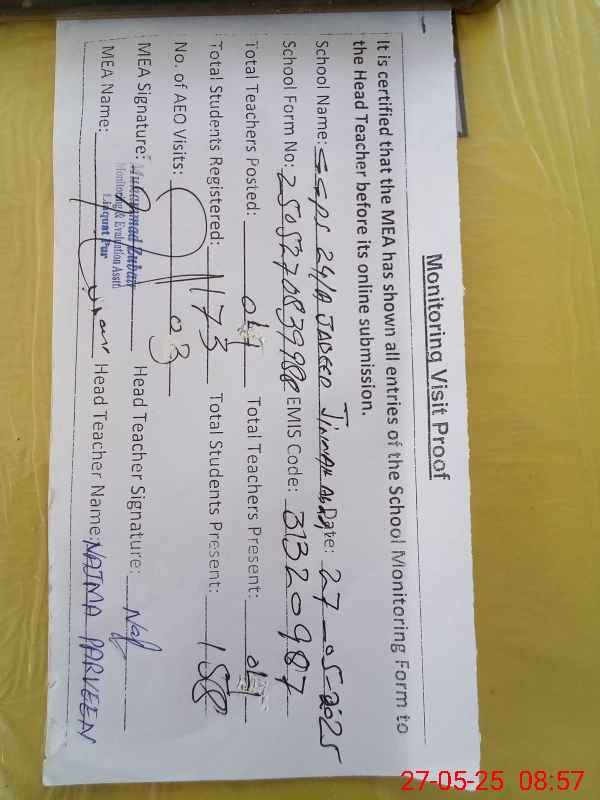 Monitoring Visit Proof
It is certified that the MEA has shown all entries of the School Monitoring Form to
the Head Teacher before its online submission.
School Name: GGPS 24/A JADEED JINNAH Abad Date: 27-05-2025
School Form No: 2505270839988 EMIS Code: 31320987
Total Teachers Posted: 04 Total Teachers Present: 04
Total Students Registered: 173 Total Students Present: 158
No. of AEO Visits: 03
MEA Signature: Head Teacher Signature:
Muhammad Zubair
Monitoring & Evaluation Asstt
Liaquat Pur
MEA Name: Head Teacher Name: NAJMA PARVEEN
27-05-25 08:57